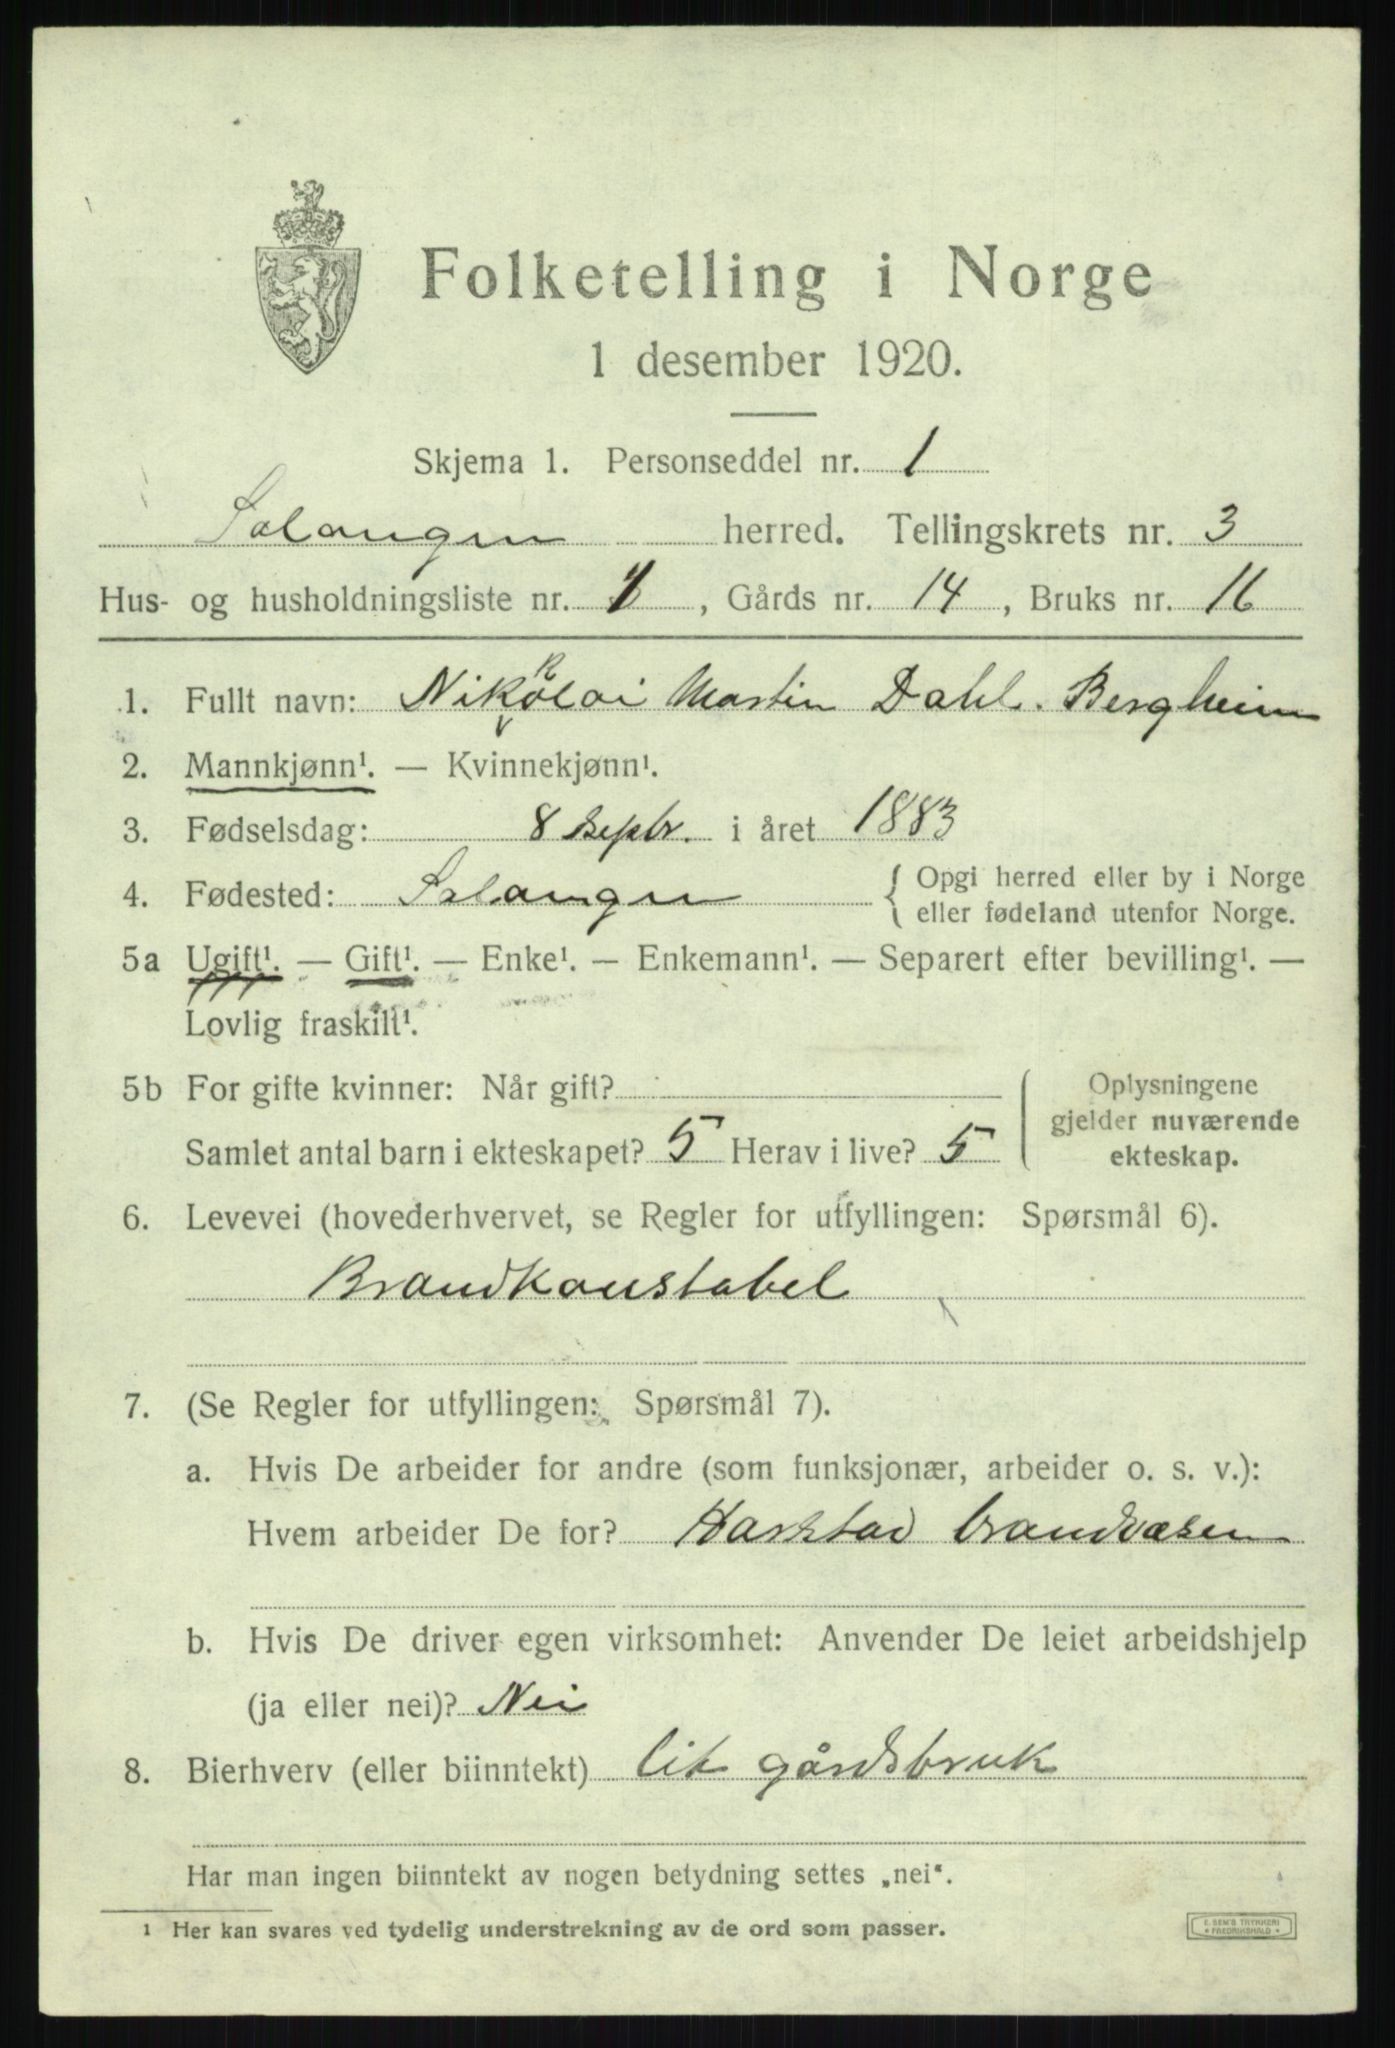 Folketelling i Norge
1 desember 1920.
Skjema 1. Personseddel nr. 1
Salangen herred. Tellingskrets nr. 3
Hus- og husholdningsliste nr. 1, Gårds nr. 14, Bruks nr. 16
1. Fullt navn: Nikolai Martin Dahl. Bergheim
2. Mannkjønn¹. — Kvinnekjønn¹.
3. Fødselsdag: 8 septbr. i året 1883
4. Fødested: Salangen { Opgi herred eller by i Norge
eller fødeland utenfor Norge.
5a Ugift¹. — Gift¹. — Enke¹. — Enkemann¹. — Separert efter bevilling¹. —
Lovlig fraskilt¹.
5b For gifte kvinner: Når gift?
Samlet antal barn i ekteskapet? 5 Herav i live? 5
Oplysningene
gjelder nuværende
ekteskap.
6. Levevei (hovederhvervet, se Regler for utfyllingen: Spørsmål 6).
Brandkonstabel
7. (Se Regler for utfyllingen: Spørsmål 7).
a. Hvis De arbeider for andre (som funksjonær, arbeider o. s. v.):
Hvem arbeider De for? Harstad brandvæsen
b. Hvis De driver egen virksomhet: Anvender De leiet arbeidshjelp
(ja eller nei)? Nei
8. Bierhverv (eller biinntekt) lit gårdsbruk
Har man ingen biinntekt av nogen betydning settes „nei“.
1 Her kan svares ved tydelig understrekning av de ord som passer.
E. SEM'S TRYKKERI
FREDRIKSHALD